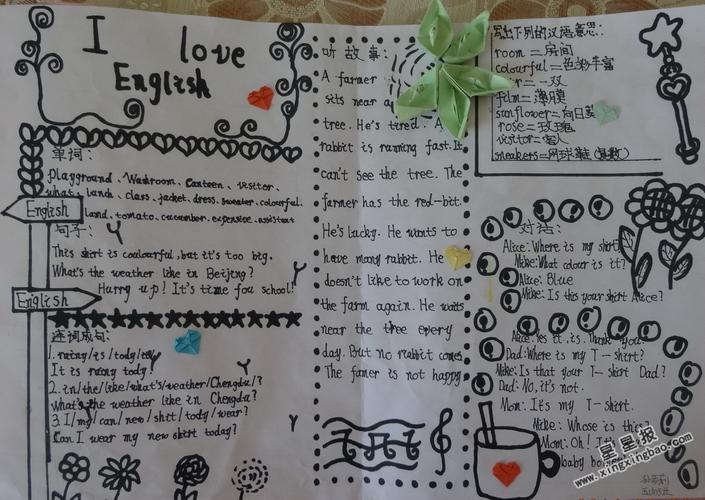 I love
English
单词:
playground、Washroom、Canteen、visitor、
what、lunch、class、jacket、dress、sweater、colourful、
land、tomato、cucumber、expensive、assistant
English
句子:
This shirt is coalourful, but it's too big.
What's the weather like in Beijing?
Hurry up! It's time fou school!
English
连词成句:
1. rainy/is/tody/it/
It is rainy tody!
2. in/the/like/what's/weather/Chengdu/?
what's the weather like in Chengdu?
3. I/my/can/new/shtt/tody/wear?
Can I wear my new shirt today?
听故事:
A farmer
sits near a
tree. He's tired. A
rabbit is running fast. It
can't see the tree. The
farmer has the red-bit.
He's lucky. He wants to
have many rabbit. He
doesn't like to work on
the farm again. He waits
near the tree every
day. But no rabbit comes
The famer is not happy
写出下列的汉语意思:
room=房间
colourful=色彩丰富
=一双
film=薄膜
sunflower=向日葵
rose=玫瑰
visitor=客人
sneakers=网球鞋(复数)
对话:
Alice: Where is my shirt
Mike: What colour is it?
Alice: Blue
Mike: Is this your shirt Alice?
Alice: Yes it is. Thank you.
Dad: Where is my T-shirt?
Mike: Is that your T-shirt Dad?
Dad: No, it's not.
Mom: It's my T-shirt.
Mike: Whose is this
Mom: Oh! It's
baby bo
星星报
www.xingxingbao.com